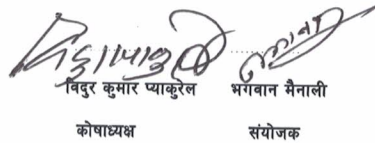 विदुर कुमार प्याकुरेल भगवान मैनाली
कोषाध्यक्ष संयोजक